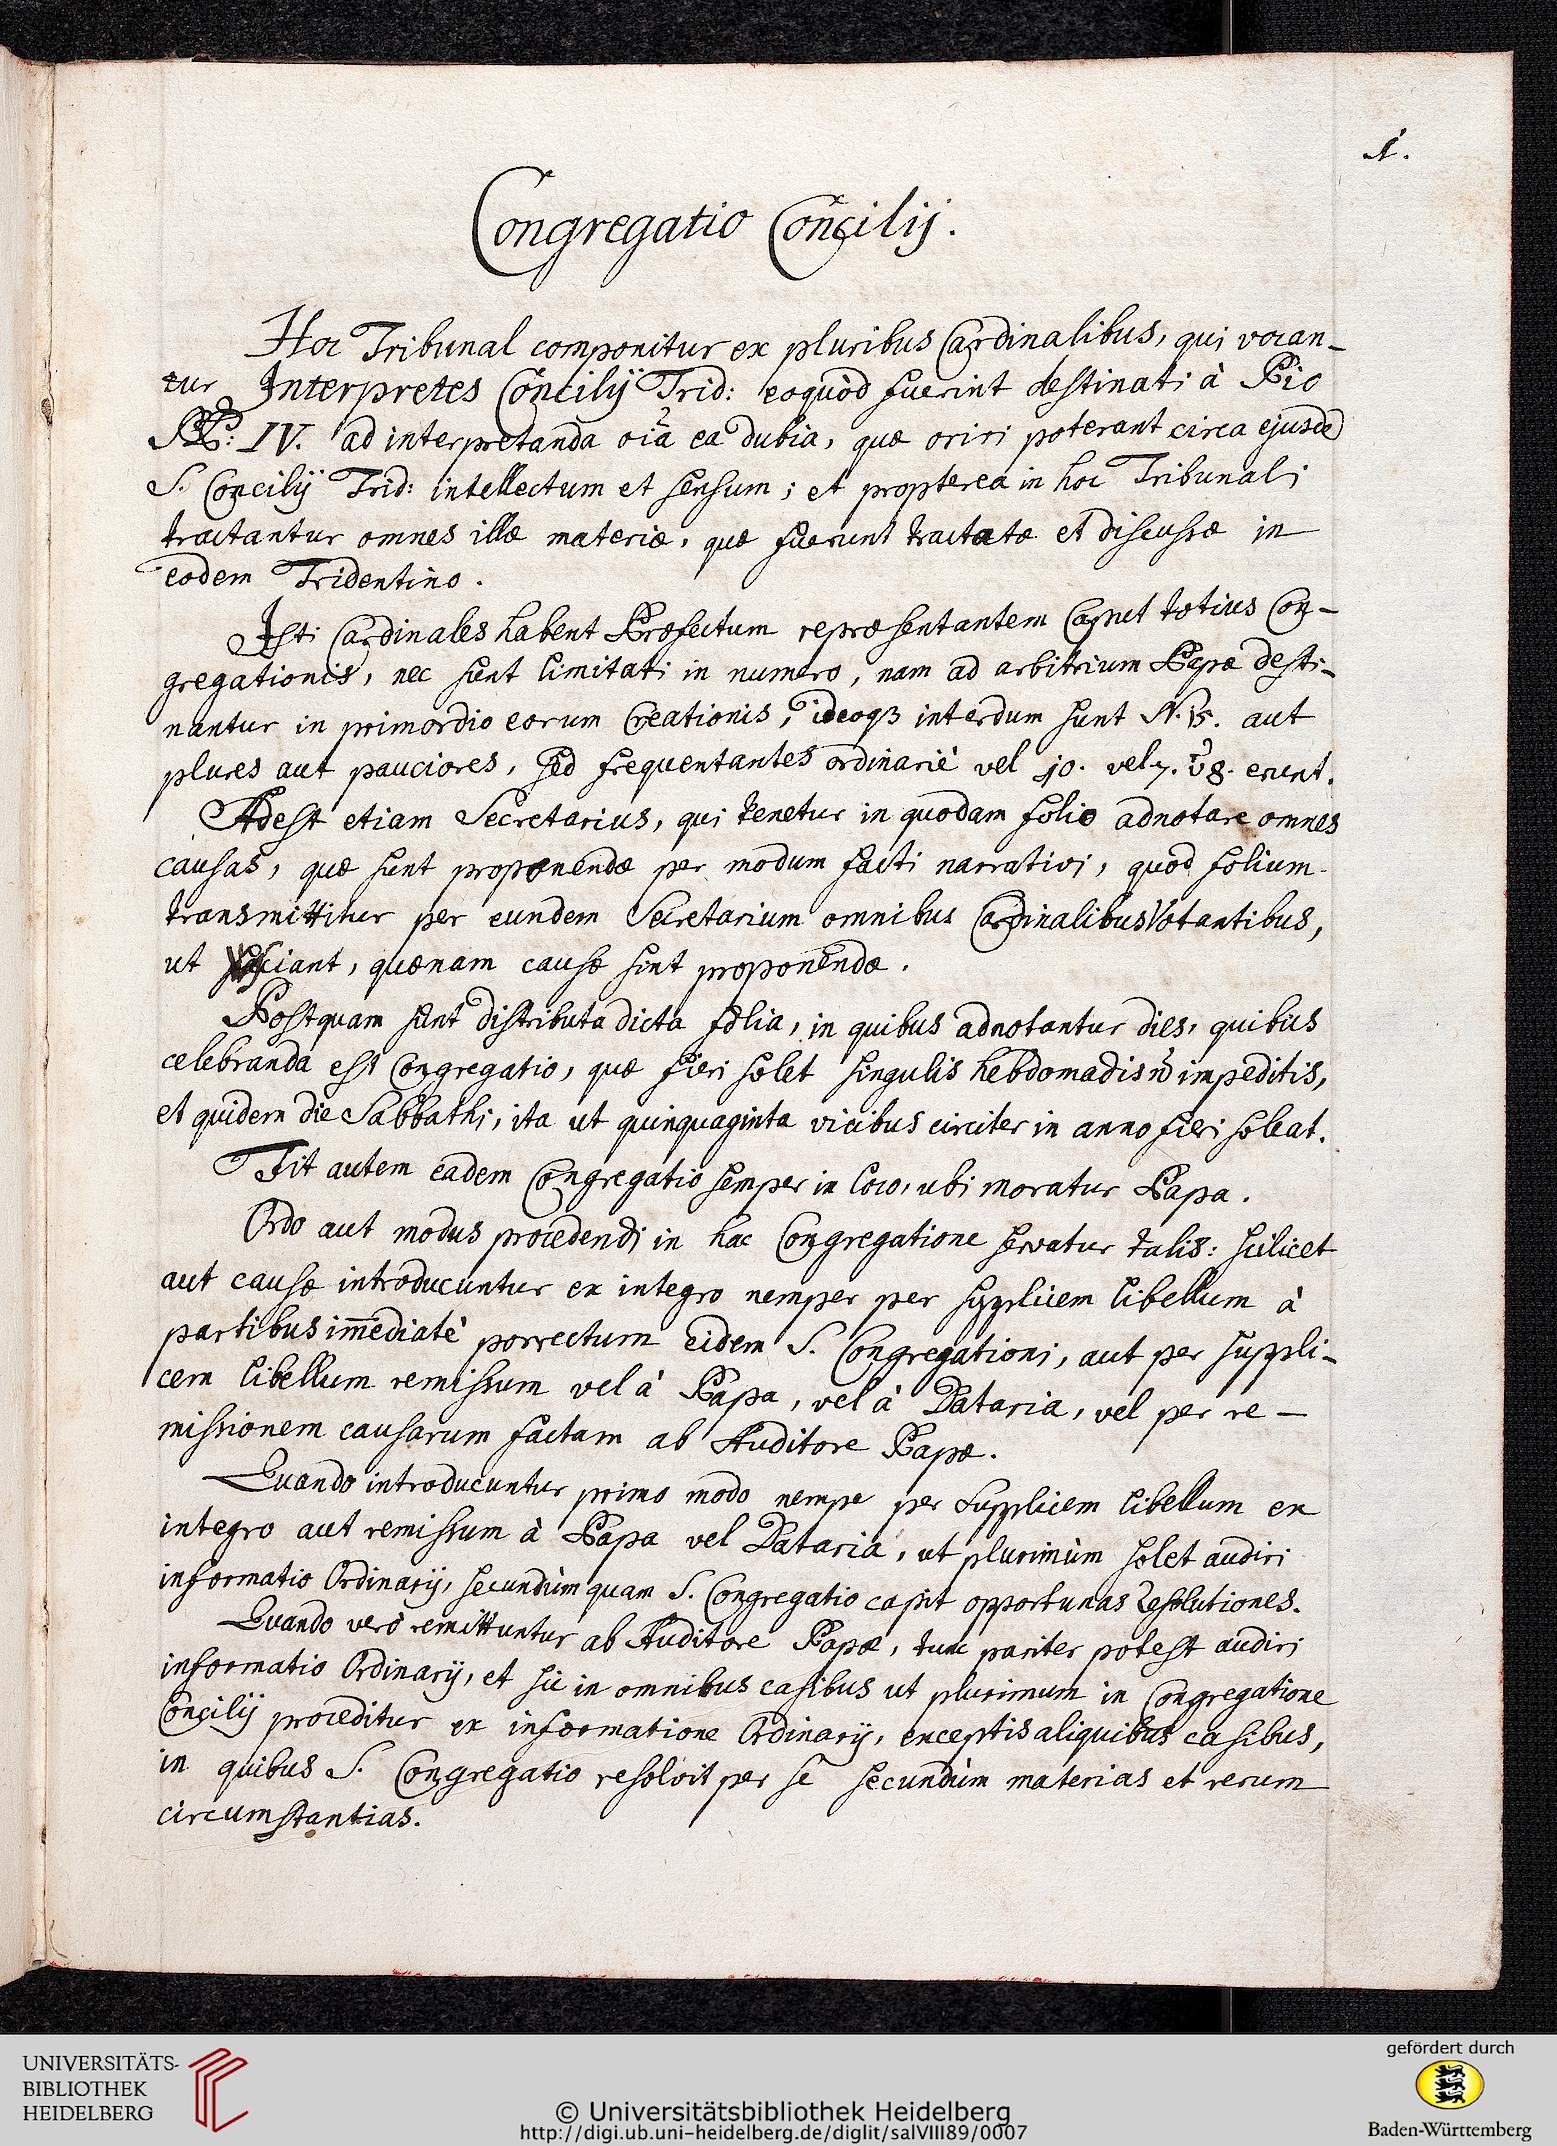 1.
Congregatio Concilij.
Hoc Tribunal componitur ex pluribus Cardinalibus, qui vocan-
tur Interpretes Concilij Trid: eoquòd fuerint destinati à Pio
PP: IV. ad interpretanda oi͂a ea dubia, quæ oriri poterant circa ejusdē
S. Concilij Trid: intellectum et sensum; et propterea in hoc Tribunali
tractantur omnes illæ materiæ, quæ fuerunt tractatæ et discussæ in
eodem Tridentino.
Isti Cardinales habent Præfectum repræsentantem Caput totius Con-
gregationis, nec sunt limitati in numero, nam ad arbitrium Papæ desti-
nantur in primordio eorum Creationis, ideoq3 interdum sunt N. 15. aut
plures aut pauciores, sed frequentantes ordinariè vel 10. vel 7. vĩ 8. erunt.
Adest etiam Secretarius, qui tenetur in quodam folio adnotare omnes
causas, quæ sunt proponendæ per modum facti narrativi, quod folium
transmittitur per eundem Secretarium omnibus Cardinalibus Votantibus,
ut sciant, quænam causæ sint proponendæ.
Postquam sunt distributa dicta folia, in quibus adnotantur dies, quibus
celebranda est Congregatio, quæ fieri solet singulis hebdomadis ñ impeditis,
et quidem die Sabbathi, ita ut quinquaginta vicibus circiter in anno fieri soleat.
Fit autem eadem Congregatio semper in loco, ubi moratur Papa.
Ordo aut modus procedendi in hac Congregatione servatur talis: scilicet
aut causæ introducuntur ex integro nemper per supplicem libellum à
partibus im̄ediatè porrectum eidem S. Congregationi, aut per suppli-
cem libellum remissum vel à Papa, vel à Dataria, vel per re-
missionem causarum factam ab Auditore Papæ.
Quando introducuntur primo modo nempe per supplicem libellum ex
integro aut remissum à Papa vel Dataria, ut plurimùm solet audiri
informatio Ordinarij, secundùm quam S. Congregatio capit opportunas Resolutiones.
Quando verò remittuntur ab Auditore Papæ, tunc pariter potest audiri
informatio Ordinarij, et sic in omnibus casibus ut plurimum in Congregatione
Concilij proceditur ex informatione Ordinarij, exceptis aliquibus casibus,
in quibus S. Congregatio resolvit per se secundùm materias et rerum
circumstantias.
UNIVERSITÄTS-
BIBLIOTHEK
HEIDELBERG
© Universitätsbibliothek Heidelberg
http://digi.ub.uni-heidelberg.de/diglit/salVIII89/0007
gefördert durch
Baden-Württemberg